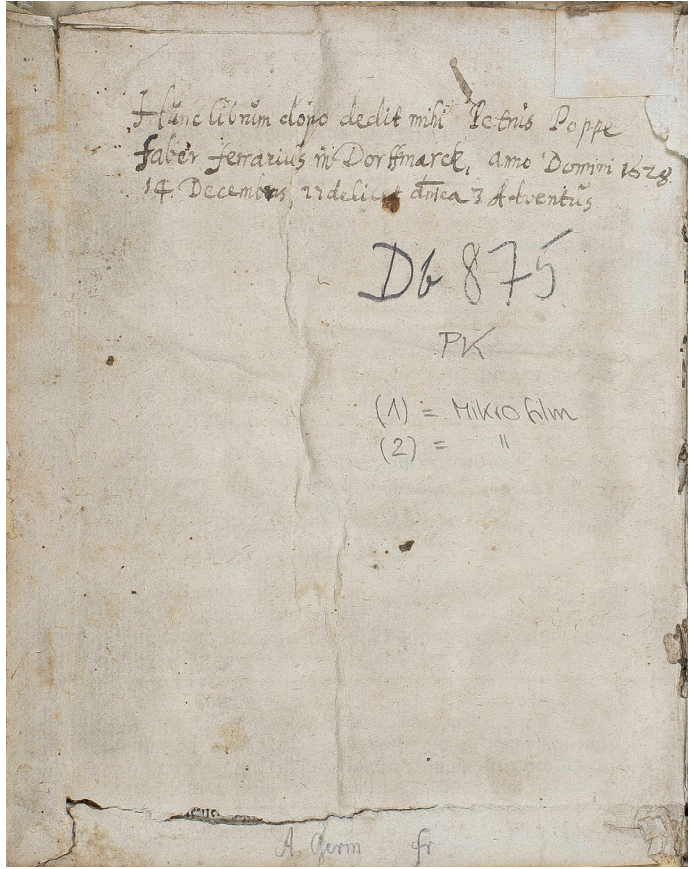 Hunc librum dono dedit mihi Petrus Poppe
faber ferrarius in Dorffmarck, anno Domini 1628.
14. Decembris, videlicet dnica 3 Adventus
Db 875
PK
(1) = Mikrofilm
(2) = "
A. Germ fr